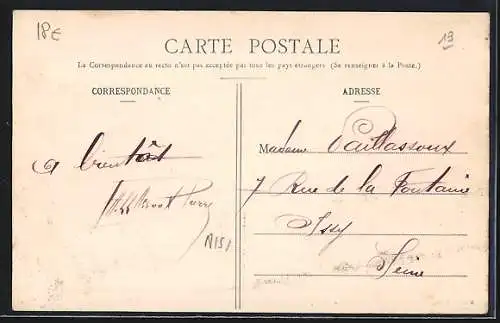 18€
19
CARTE POSTALE
La Correspondance au recto n'est pas acceptée par tous les pays étrangers (Se renseigner à la Poste.)
CORRESPONDANCE
a bientôt
A151
ADRESSE
Madame Vaillassoux
7 Rue de la Fontaine
Issy
Seine